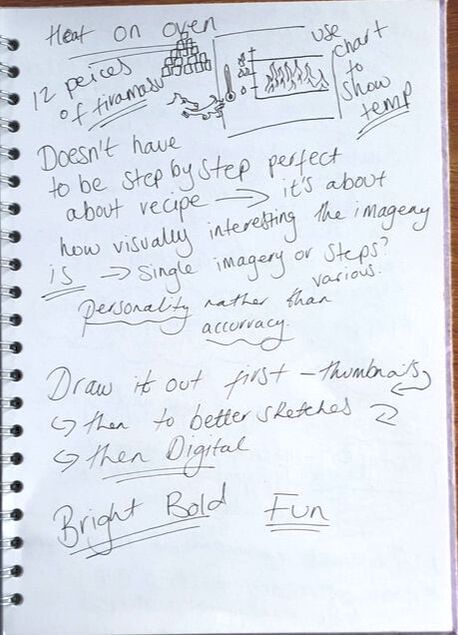 Heat on oven
12 peices
of tiramasu
use
chart
to
show
temp
Doesn't have
to be step by step perfect
about recipe → it's about
how visually interesting the imagery
is → single imagery or steps?
various.
personality rather than
accuracy.
Draw it out first - thumbnails
↪ then to better sketches
↪ then Digital
Bright Bold Fun